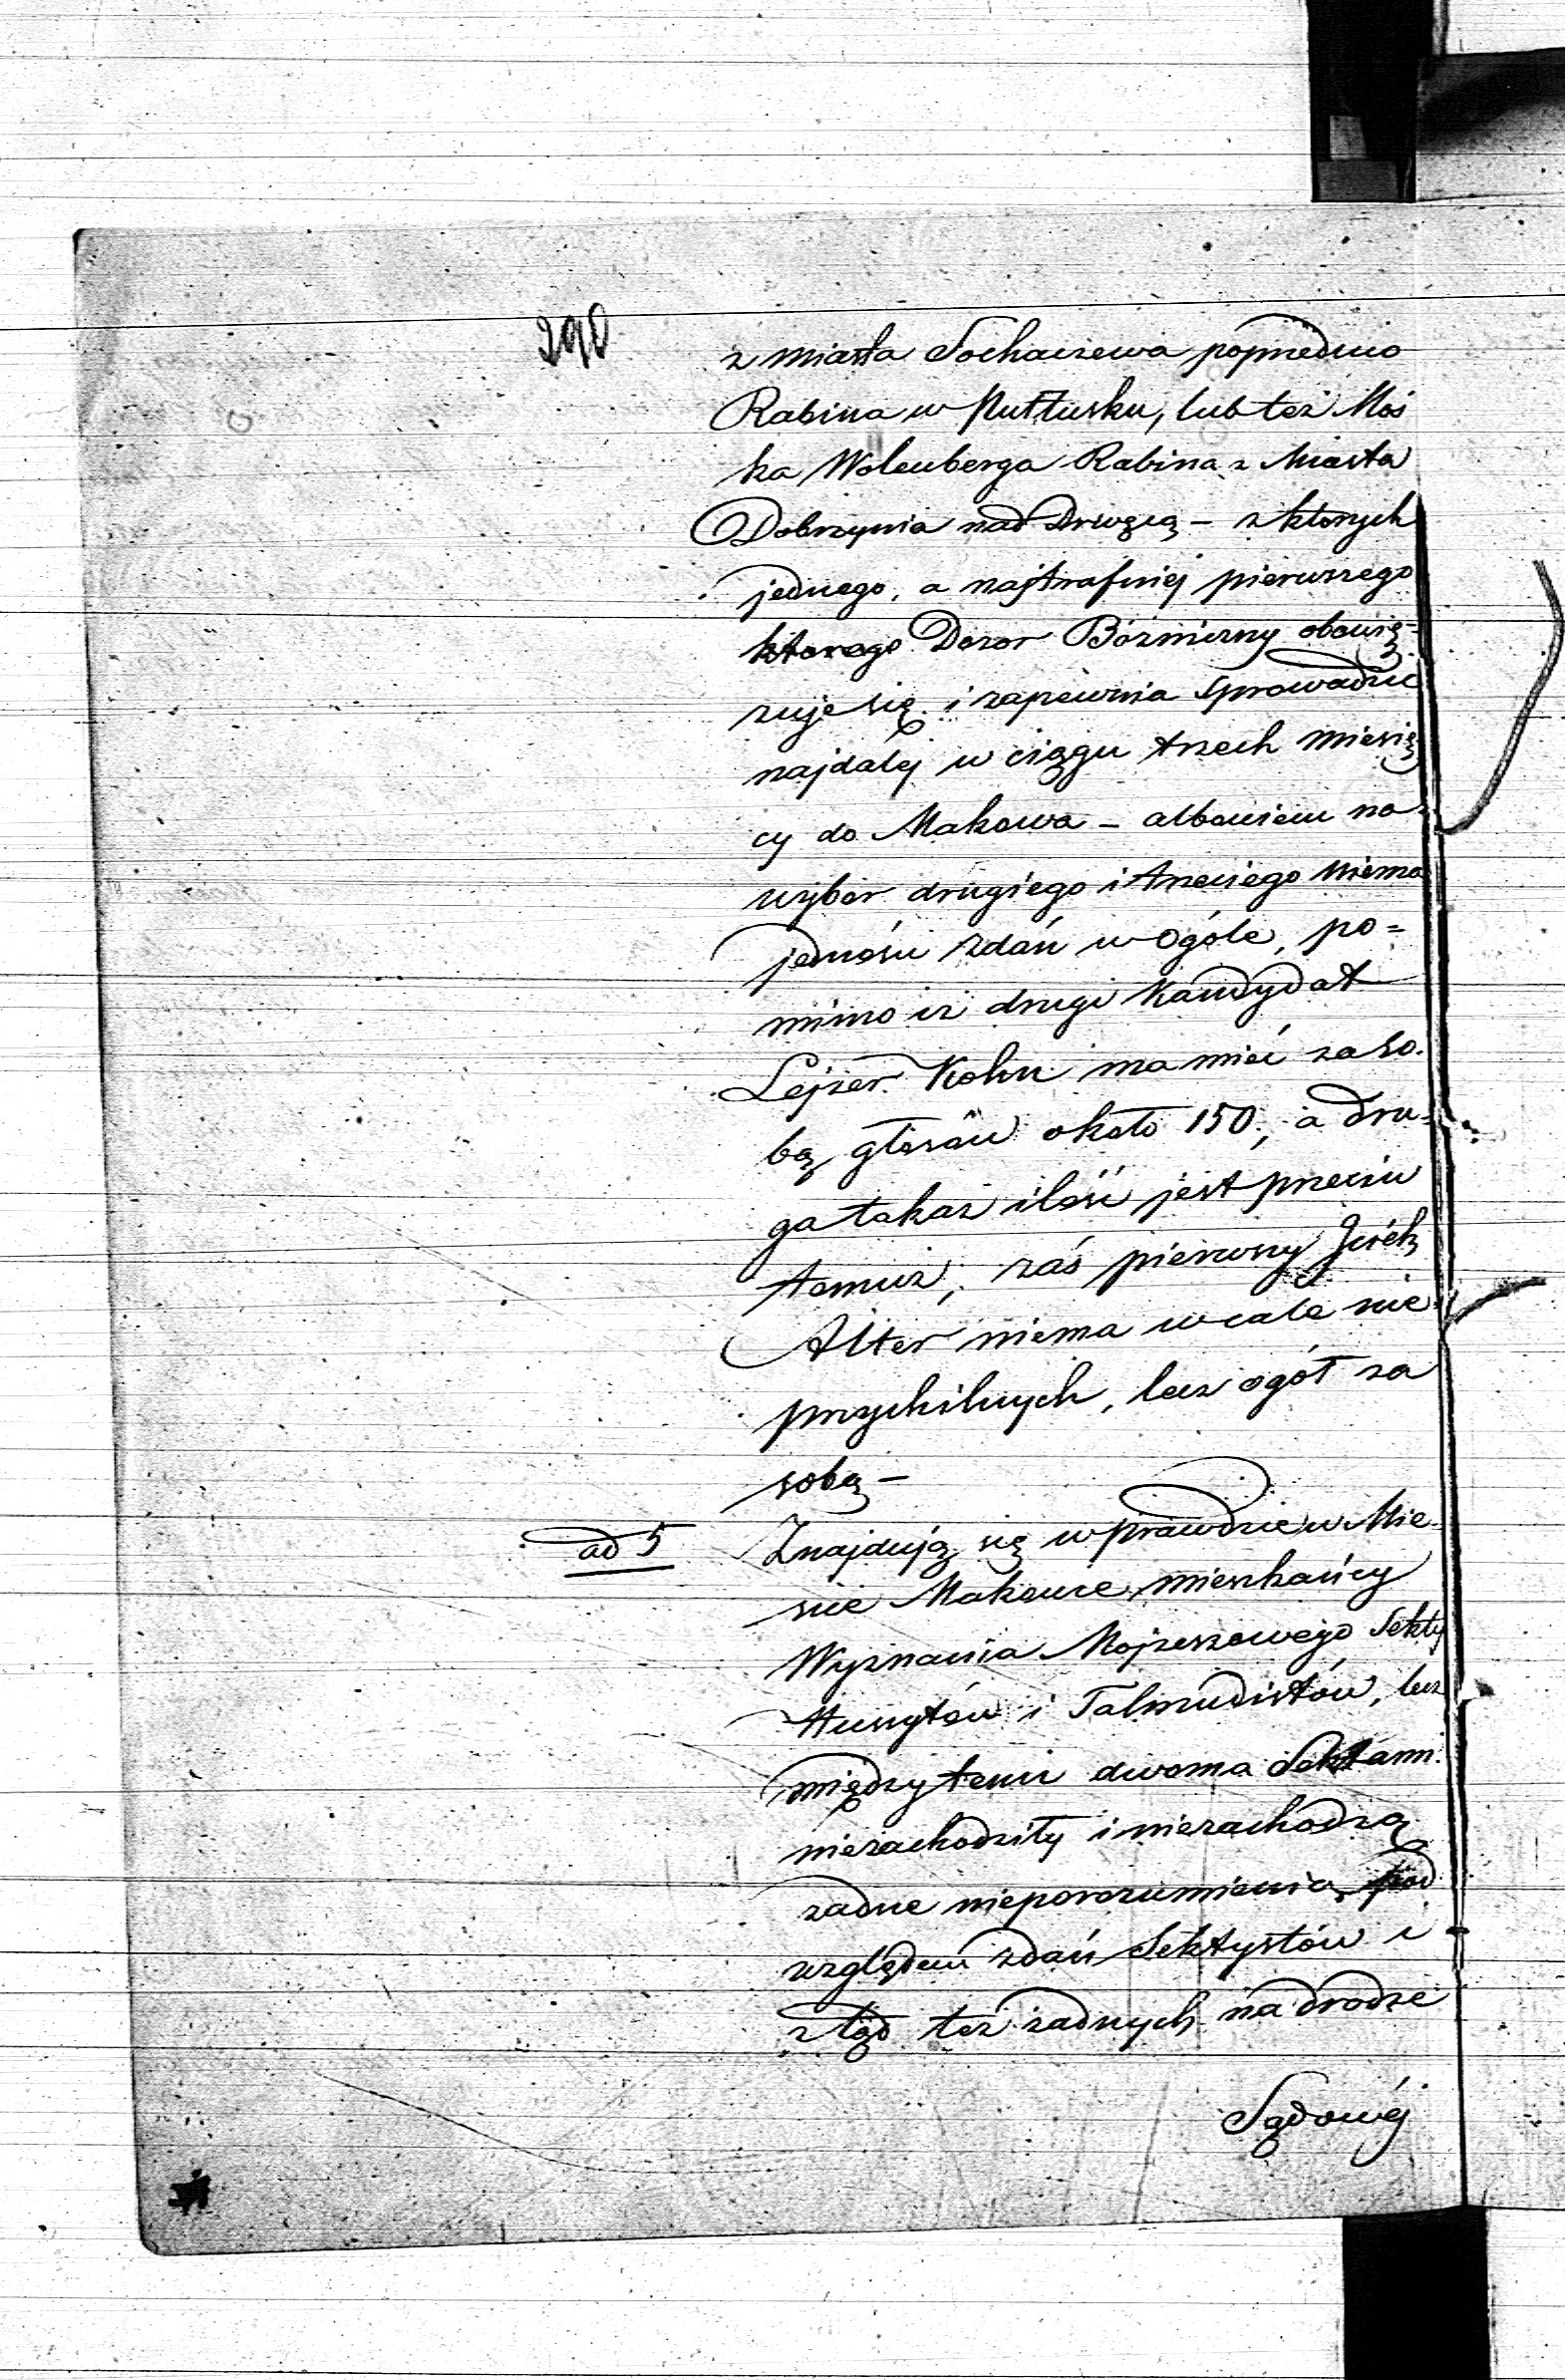 290
z miasta Sochaczewa poprzednio
Rabina w Pułtusku, lub też Moś
ka Wolenberga Rabina z Miasta
Dobrzynia nad Drwęcą – z których
jednego, a najtrafniej pierwszego
którego Dozor Bóżniczny obowię=
zuje się i zapewnia sprowadzić
najdalej w ciągu trzech miesię
cy do Makowa – albowiem na
wybor drugiego i trzeciego niema
jedności zdań w ogóle, po=
mimo iż drugi Kandydat
Lejzer Kohn ma mieć za so.
bą głosów około 150, a dru=
ga takaż ilość jest przeciw
temuż, zaś pierwszy Icièk
Alter niema wcale nie
przychilnych, lecz ogół za
sobą –
ad 5
Znajdują się wprawdzie w Mie
ście Makowie mieszkańcy
Wyznania Mojżeszowego Sekty
Hussytów i Talmudistów, lecz
między temi dwoma Sektami
niezachodziły i niezachodzą
żadne nieporozumienia, pod
względem zdań Sektystów i
ztąd też żadnych na drodze
Sądowéj